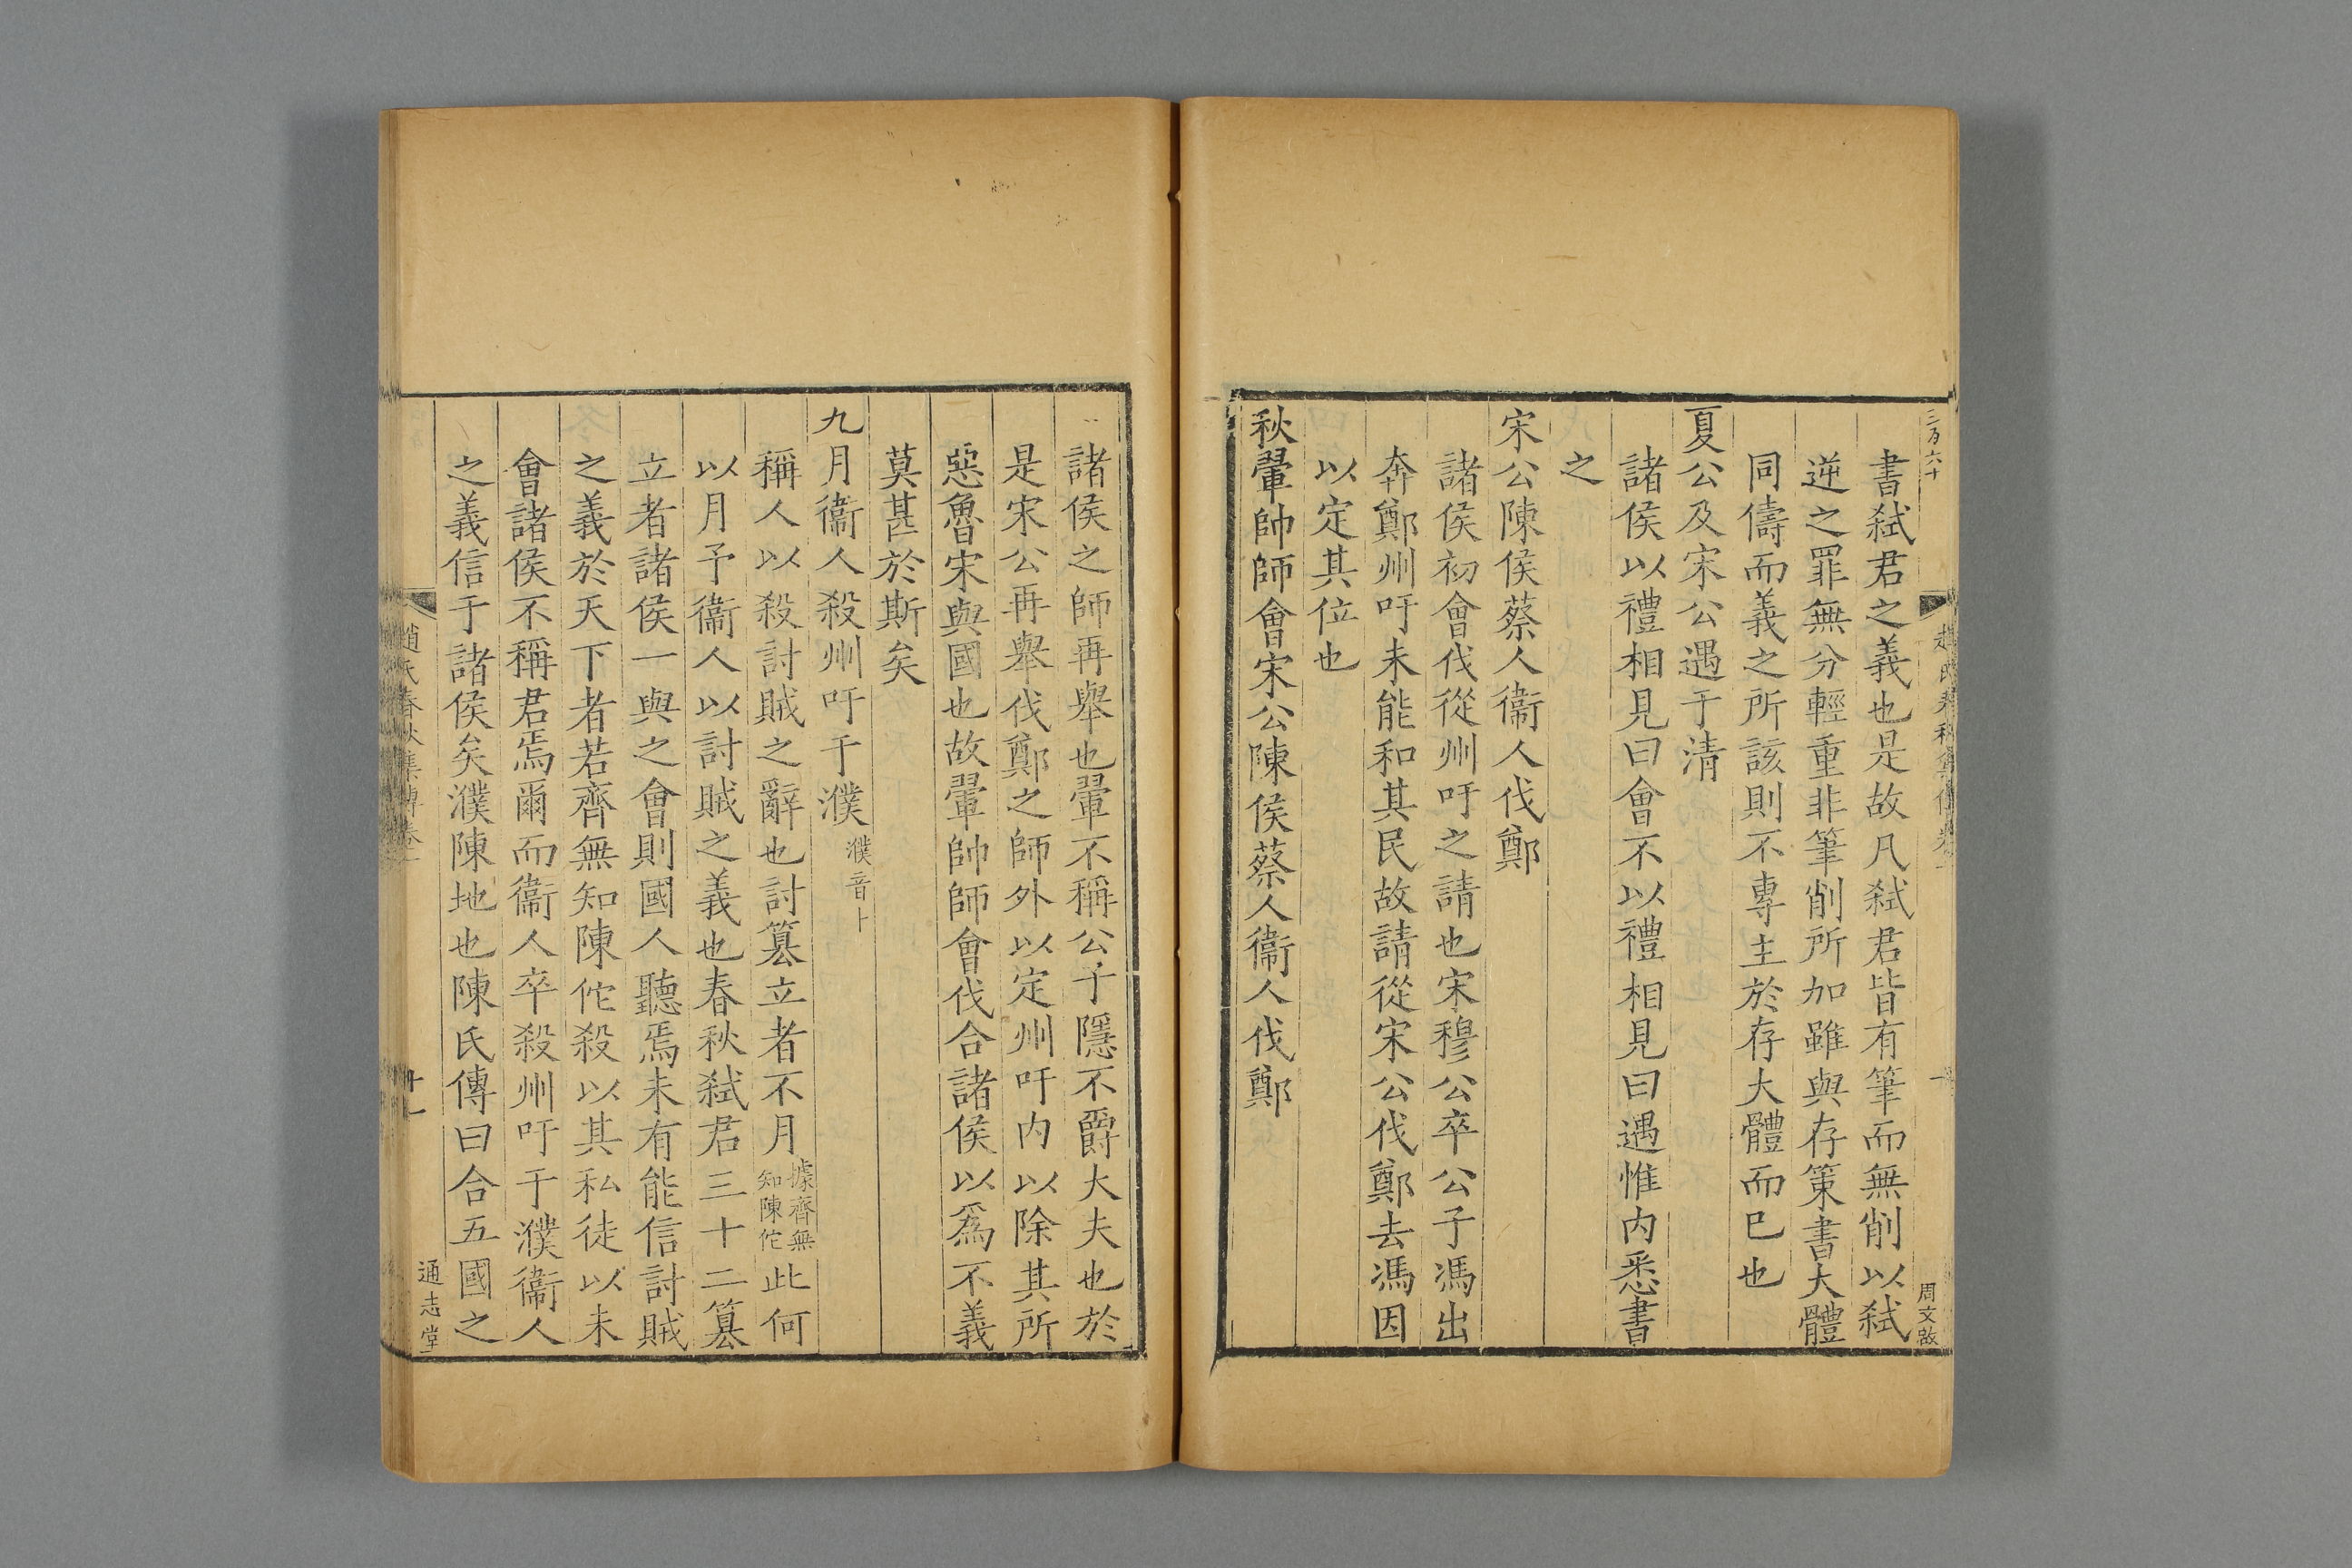 三百六十
趙氏春秋集傳卷一
周文啟
書弑君之義也是故凡弑君皆有筆而無削以弑
逆之罪無分輕重非筆削所加雖與存策書大體
同儔而義之所該則不專主於存大體而巳也
夏公及宋公遇于清
諸侯以禮相見曰會不以禮相見曰遇惟内悉書
之
宋公陳侯蔡人衞人伐鄭
諸侯初會伐從州吁之請也宋穆公卒公子馮出
奔鄭州吁未能和其民故請從宋公伐鄭去馮因
以定其位也
秋翬帥師會宋公陳侯蔡人衞人伐鄭
諸侯之師再舉也翬不稱公子隱不爵大夫也於
是宋公再舉伐鄭之師外以定州吁内以除其所
惡魯宋與國也故翬帥師會伐合諸侯以爲不義
莫甚於斯矣
九月衞人殺州吁于濮濮音卜
稱人以殺討賊之辭也討篡立者不月據齊無知陳佗此何
以月予衞人以討賊之義也春秋弑君三十二篡
立者諸侯一與之會則國人聽焉未有能信討賊
之義於天下者若齊無知陳佗殺以其私徒以未
會諸侯不稱君焉爾而衞人卒殺州吁于濮衞人
之義信于諸侯矣濮陳地也陳氏傳曰合五國之
趙氏春秋集傳卷一
十一
通志堂